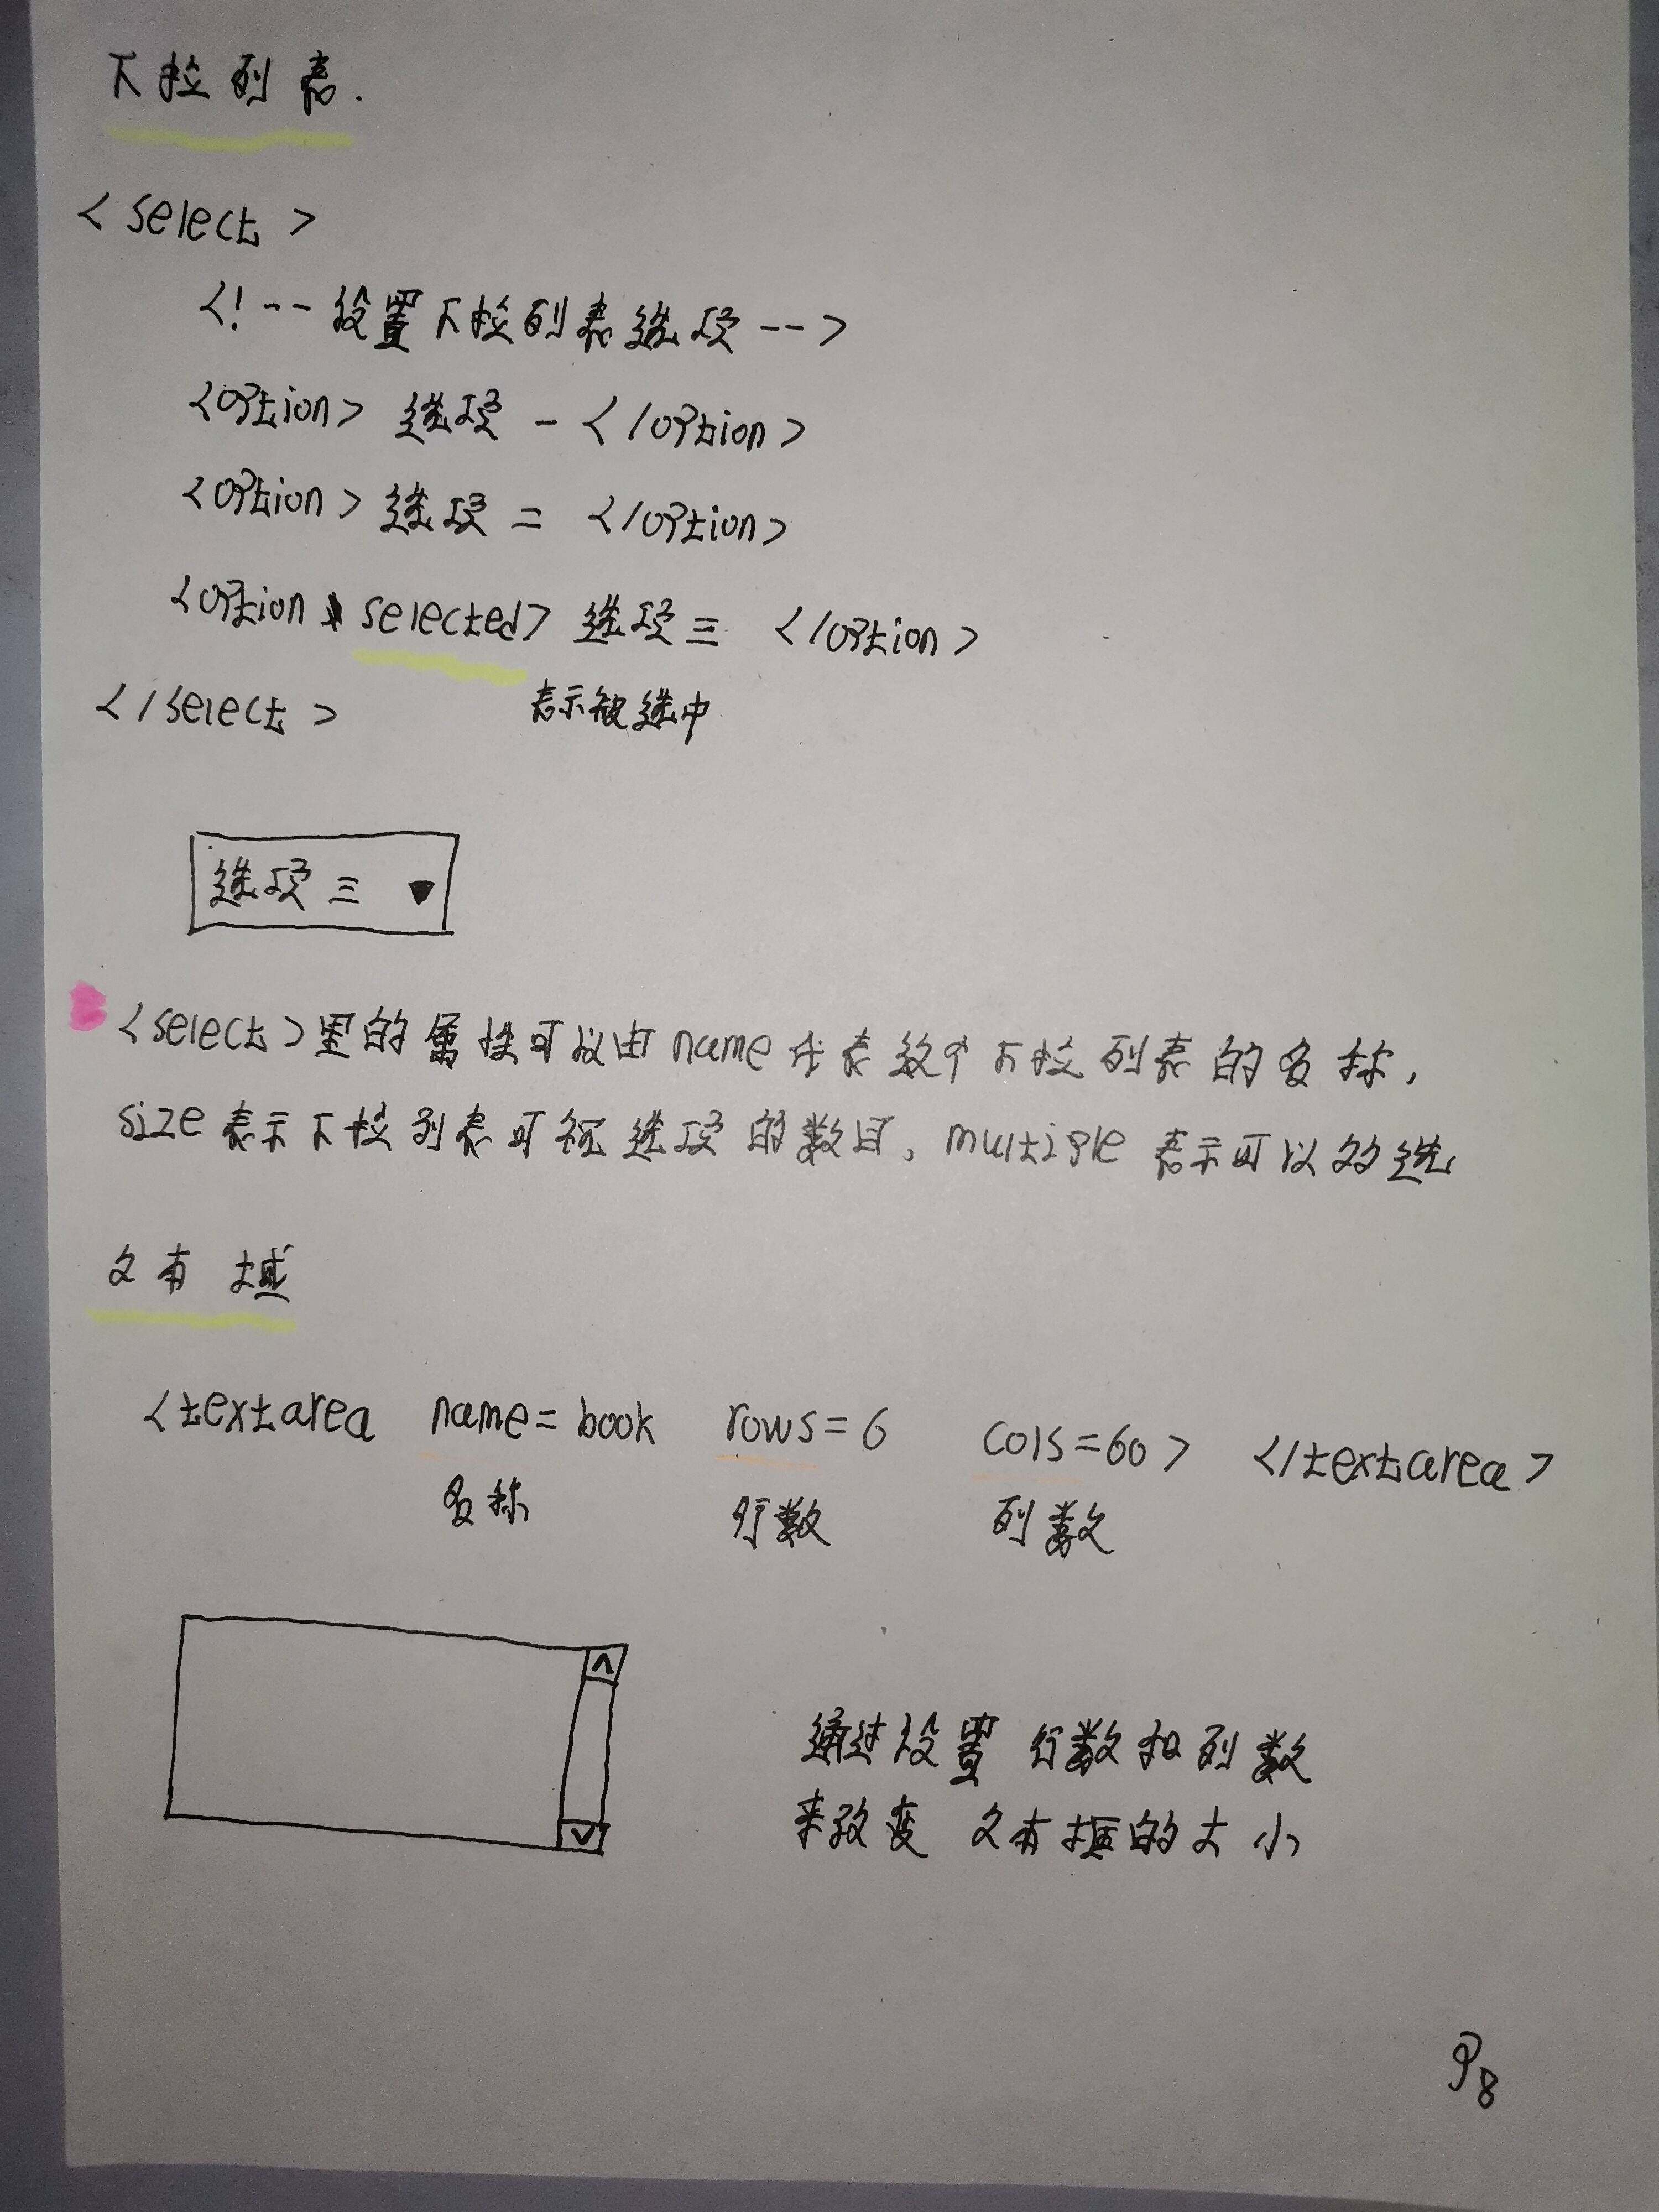 下拉列表.
<select>
<!--设置下拉列表选项-->
<option>选项一</option>
<option>选项二</option>
<option selected>选项三</option>
</select>
表示被选中
选项三 ▼
<select>里的属性可以由name代表整个下拉列表的名称,
size表示下拉列表可视选项的数目,multiple表示可以多选
文本域
<textarea name=book rows=6 cols=60></textarea>
名称 行数 列数
通过设置行数和列数
来改变文本框的大小
P8